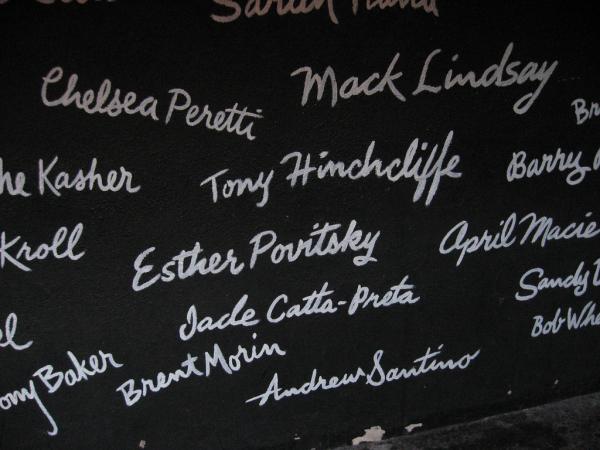 Chelsea Peretti
Mack Lindsay
he Kasher
Tony Hinchcliffe
Barry
Kroll
Esther Povitsky
April Macie
Jade Catta-Preta
Sandy
el
Brent Morin
Bob Whe
ony Baker
Andrew Santino